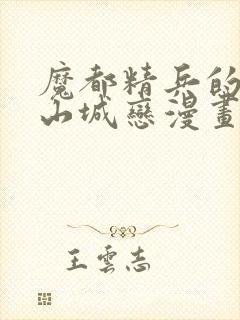 魔都精兵的
山城戀漫畫
王雲志